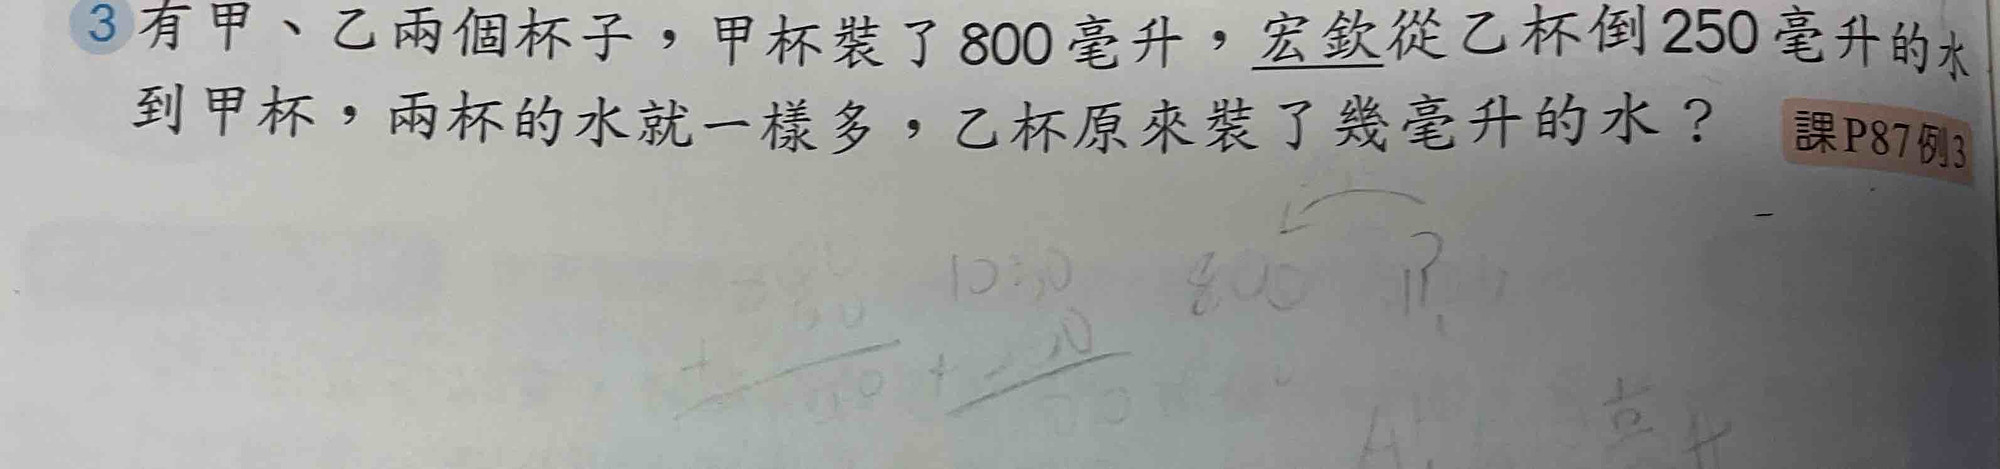 3 有甲、乙兩個杯子，甲杯裝了800毫升，宏欽從乙杯倒250毫升的水
到甲杯，兩杯的水就一樣多，乙杯原來裝了幾毫升的水？
課P87例3
800 ?